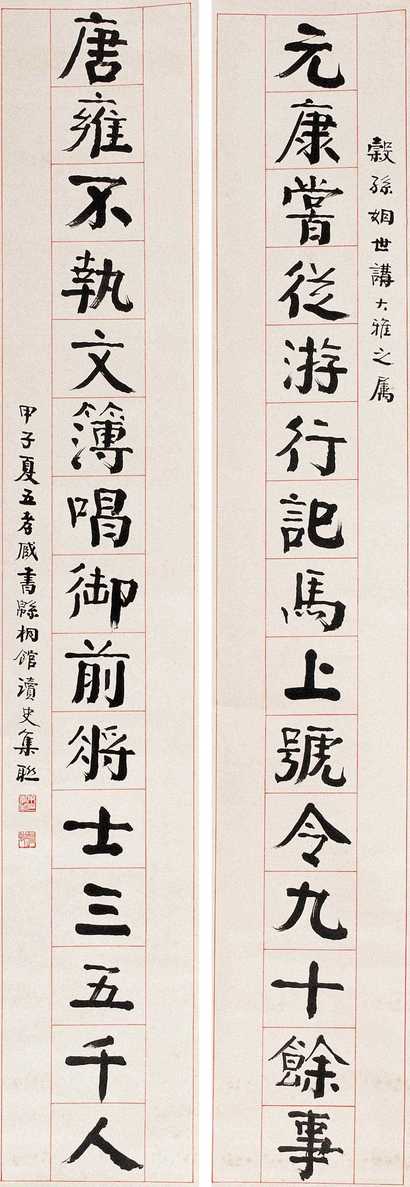 穀孫姻世講大雅之属
元康嘗從游行記馬上號令九十餘事
唐雍不執文簿唱御前將士三五千人
甲子夏五孝臧書緜桐館讀史集聯